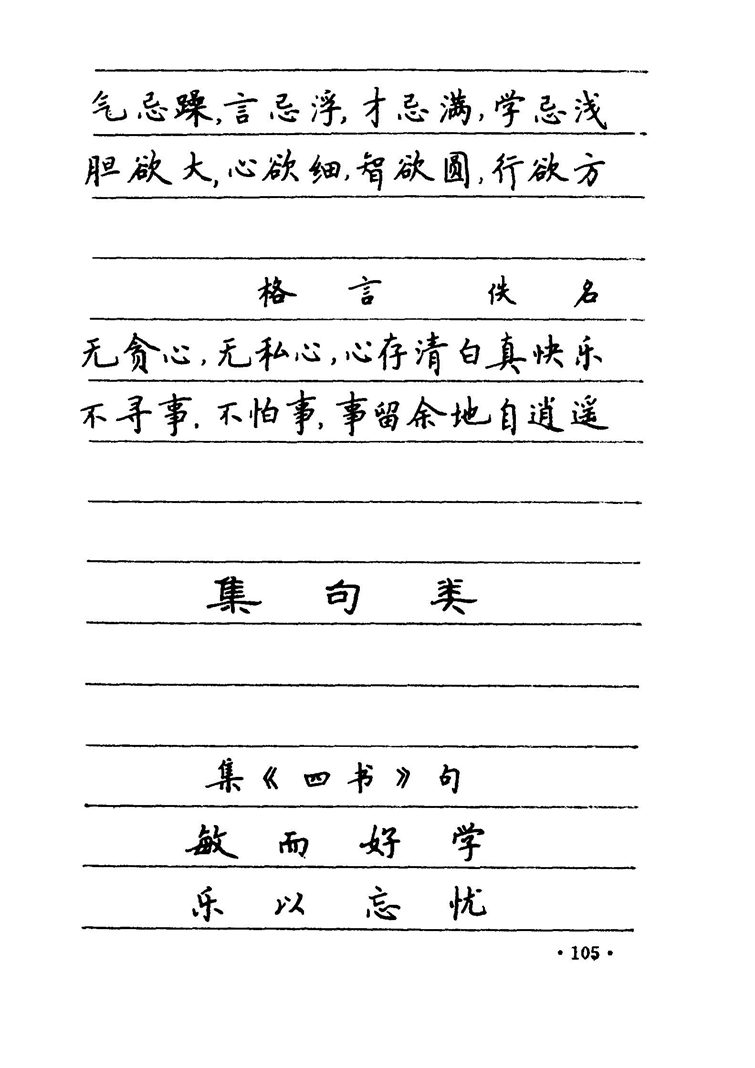 气忌躁,言忌浮,才忌满,学忌浅
胆欲大,心欲细,智欲圆,行欲方
格言 佚名
无贪心,无私心,心存清白真快乐
不寻事,不怕事,事留余地自逍遥
集句类
集《四书》句
敏而好学
乐以忘忧
·105·